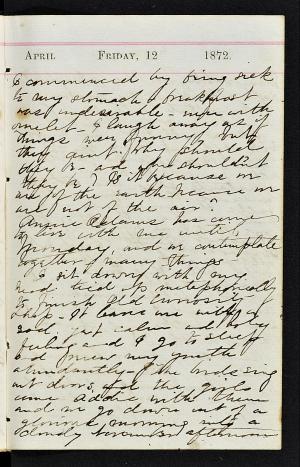 April Friday, 12 1872.
I commenced by being sick
to my stomach & breakfast
was undesirable - even with
omelet - & laugh away as if
things were funny, but
they aint. Why should
they be - and why shouldn't
they be? Is it because we
are of the earth because we
are not of the air?
Annie has come
to live with me until
Monday, and we contemplate
together many things
I sit down with my
head tied up metaphorically
to finish Old Curiosity
Shop - It leaves me with a
sad, yet calm and holy
feeling and I go to sleep
and my youth
abundantly - The birds sing
out doors, and the girls
come Addie with them
and we go down out of a
glorious morning into a
cloudy afternoon